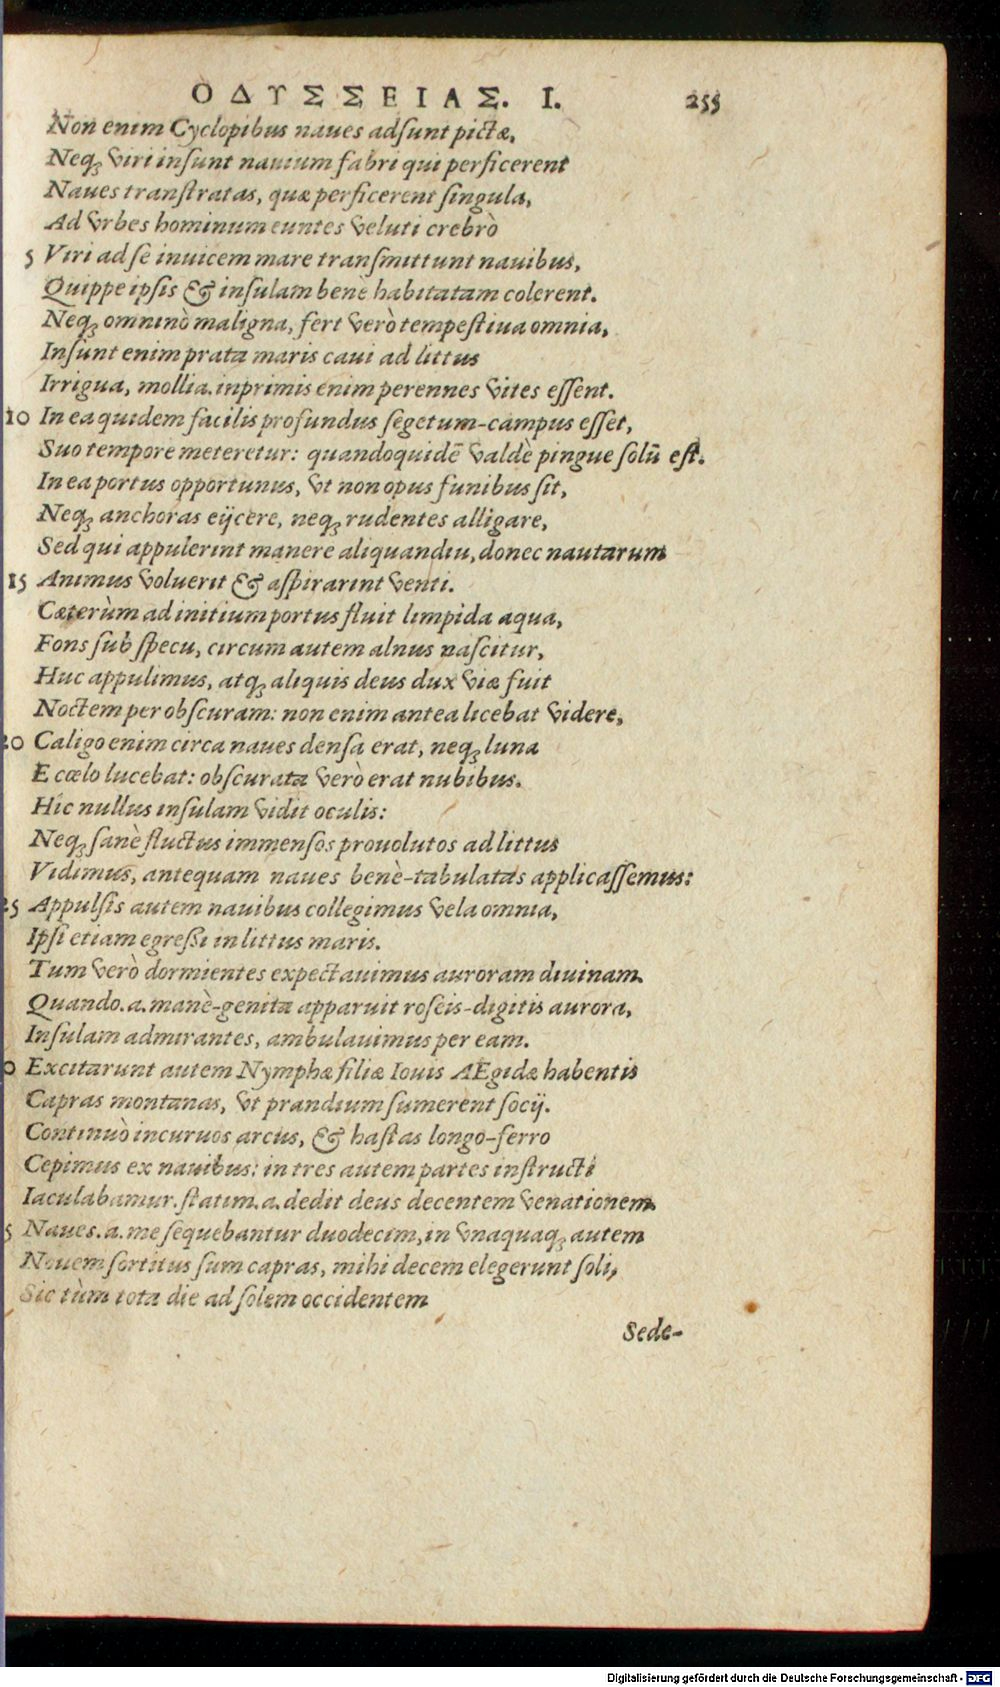 ΟΔΥΣΣΕΙΑΣ. Ι. 255
Non enim Cyclopibus naues adsunt pictæ,
Neq; viri insunt nauium fabri qui perficerent
Naues transtratas, quæ perficerent singula,
Ad vrbes hominum euntes veluti crebrò
5 Viri ad se inuicem mare transmittunt nauibus,
Quippe ipsis & insulam benè habitatam colerent.
Neq; omninò maligna, fert verò tempestiua omnia,
Insunt enim prata maris caui ad littus
Irrigua, mollia. inprimis enim perennes vites essent.
10 In ea quidem facilis profundus segetum-campus esset,
Suo tempore meteretur: quandoquidē valdè pingue solū est.
In ea portus opportunus, vt non opus funibus sit,
Neq; anchoras eijcere, neq; rudentes alligare,
Sed qui appulerint manere aliquandiu, donec nautarum
15 Animus voluerit & aspirarint venti.
Cæterùm ad initium portus fluit limpida aqua,
Fons sub specu, circum autem alnus nascitur,
Huc appulimus, atq; aliquis deus dux viæ fuit
Noctem per obscuram: non enim antea licebat videre,
20 Caligo enim circa naues densa erat, neq; luna
E cœlo lucebat: obscurata verò erat nubibus.
Hic nullus insulam vidit oculis:
Neq; sanè fluctus immensos prouolutos ad littus
Vidimus, antequam naues benè-tabulatas applicassemus:
25 Appulsis autem nauibus collegimus vela omnia,
Ipsi etiam egressi in littus maris.
Tum verò dormientes expectauimus auroram diuinam.
Quando.a. manè-genita apparuit roseis-digitis aurora,
Insulam admirantes, ambulauimus per eam.
0 Excitarunt autem Nymphæ filiæ Iouis AEgidæ habentis
Capras montanas, vt prandium sumerent socij.
Continuò incuruos arcus, & hastas longo-ferro
Cepimus ex nauibus: in tres autem partes instructi
Iaculabamur. statim.a. dedit deus decentem venationem.
5 Naues.a. me sequebantur duodecim, in vnaquaq; autem
Nouem sortitus sum capras, mihi decem elegerunt soli,
Sic tùm tota die ad solem occidentem
Sede-
Digitalisierung gefördert durch die Deutsche Forschungsgemeinschaft - DFG